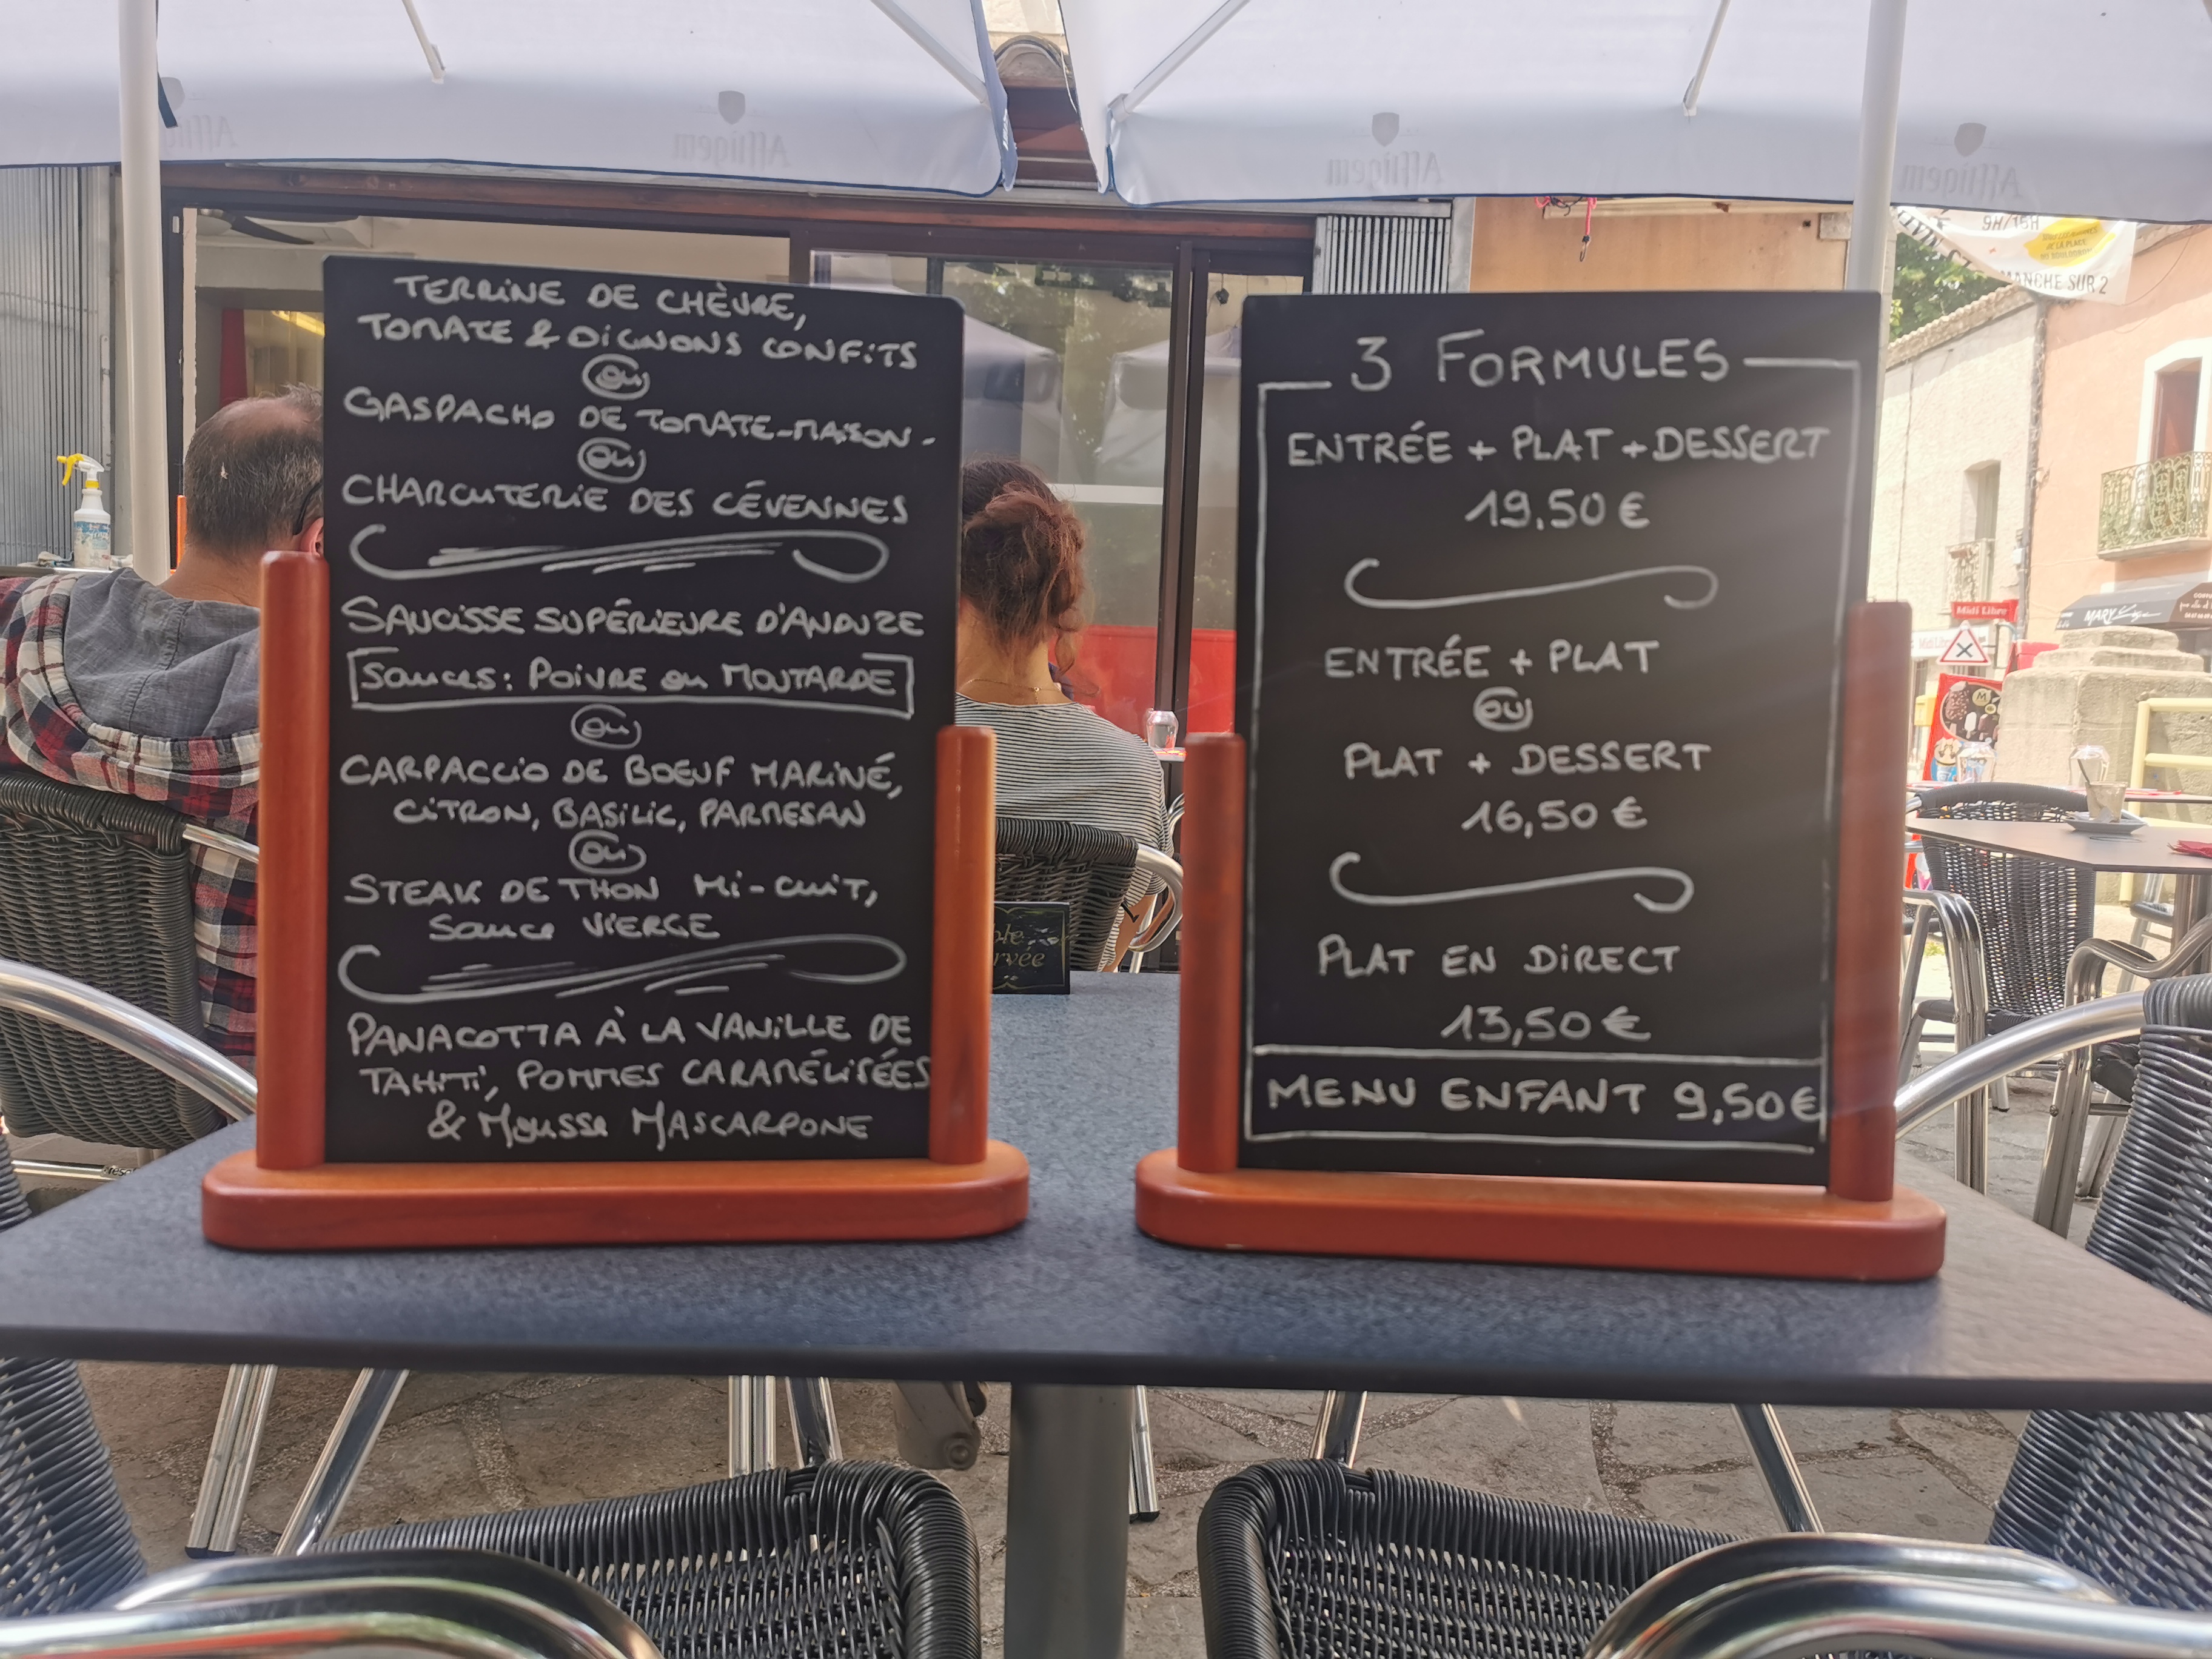 TERRINE DE CHÈVRE,
TOMATE & OIGNONS CONFITS
OU
GASPACHO DE TOMATE-MAISON-
OU
CHARCUTERIE DES CÉVENNES
SAUCISSE SUPÉRIEURE D'ANDUZE
Sauces: POIVRE ou MOUTARDE
OU
CARPACCIO DE BOEUF MARINÉ,
CITRON, BASILIC, PARMESAN
OU
STEAK DE THON Mi-cuiT,
Sauce VIERGE
PANACOTTA À LA VANILLE DE
TAHITI, POMMES CARAMÉLISÉES
& Mousse MASCARPONE
3 FORMULES
ENTRÉE + PLAT + DESSERT
19,50 €
ENTRÉE + PLAT
OU
PLAT + DESSERT
16,50 €
PLAT EN DIRECT
13,50 €
MENU ENFANT 9,50€
Affligem
Affligem
Affligem
9H/16H
DE LA PLACE
MANCHE SUR 2
Midi Libre
MARY
ble
rvée